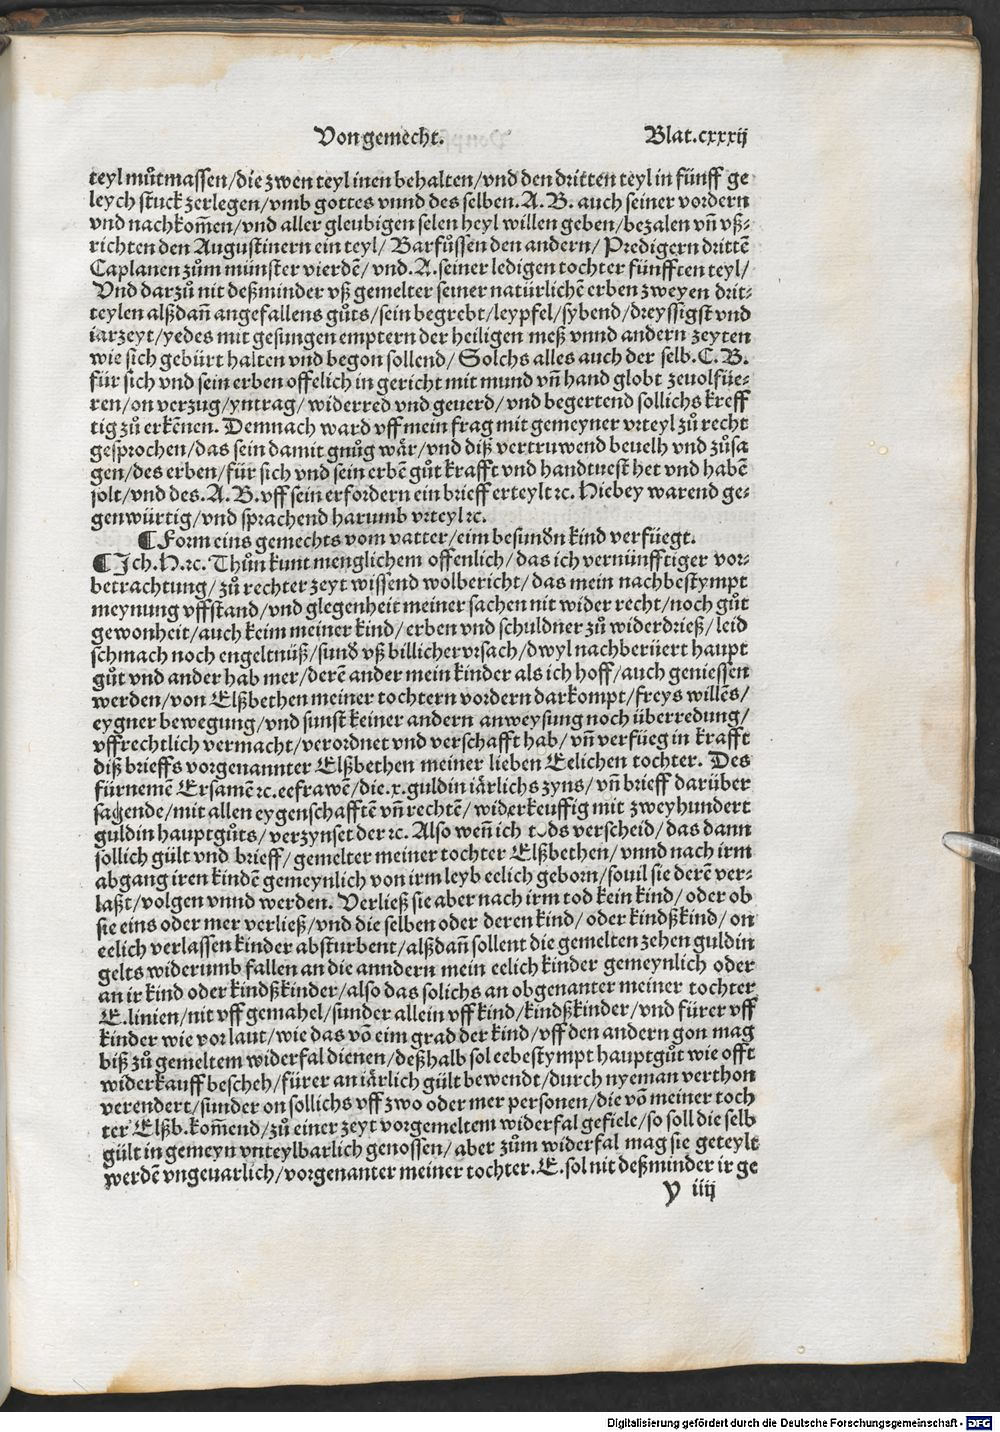 Von gemecht.
Blat.cxxxij
teyl můtmassen/die zwen teyl inen behalten/vnd den dritten teyl in fünff ge
leych stuck zerlegen/vmb gottes vnnd des selben. A. B. auch seiner vordern
vnd nachkom̃en/vnd aller gleubigen selen heyl willen geben/bezalen vn̄ vß⸗
richten den Augustinern ein teyl/ Barfůssen den andern/ Predigern drittē
Caplanen zům münster vierdē/ vnd. A. seiner ledigen tochter fünfften teyl/
Vnd darzů nit deßminder vß gemelter seiner natürlichē erben zweyen drit⸗
teylen alßdañ angefallens gůts/sein begrebt/leypfel/sybend/dreyssigst vnd
iarzeyt/yedes mit gesungen emptern der heiligen meß vnnd andern zeyten
wie sich gebürt halten vnd begon sollend/ Solchs alles auch der selb. C. B.
für sich vnd sein erben offelich in gericht mit mund vn̄ hand globt zeuolfüe⸗
ren/on verzug/yntrag/ widerred vnd geuerd/vnd begertend sollichs kreff
tig zů erkēnen. Demnach ward vff mein frag mit gemeyner vrteyl zů recht
gesprochen/das sein damit gnůg wår/vnd diß vertruwend beuelh vnd zůsa
gen/des erben/für sich vnd sein erbē gůt krafft vnd handtuest het vnd habē
solt/vnd des. A. B. vff sein erfordern ein brieff erteylt ꝛc. Hiebey warend ge⸗
genwürtig/vnd sprachend harumb vrteyl ꝛc.
¶ Form eins gemechts vom vatter/eim besundn̄ kind verfüegt.
¶ Ich. N. ꝛc. Thůn kunt menglichem offenlich/das ich vernünfftiger vor⸗
betrachtung/ zů rechter zeyt wissend wolbericht/das mein nachbestympt
meynung vffstand/vnd glegenheit meiner sachen nit wider recht/noch gůt
gewonheit/auch keim meiner kind/erben vnd schuldner zů widerdrieß/leid
schmach noch engeltnüß/sund̄ vß billicher vrsach/dwyl nachberüert haupt
gůt vnd ander hab mer/derē ander mein kinder als ich hoff/auch geniessen
werden/von Elßbethen meiner tochtern vordern darkompt/freys willēs/
eygner bewegung/vnd sunst keiner andern anweysung noch überredung/
vffrechtlich vermacht/verordnet vnd verschafft hab/vn̄ verfüeg in krafft
diß brieffs vorgenannter Elßbethen meiner lieben Eelichen tochter. Des
fürnemē Ersamē ꝛc. eefrawē/die. x. guldin iärlichs zyns/vn̄ brieff darüber
sagende/mit allen eygenschafftē vn̄ rechtē/widerkeuffig mit zweyhundert
guldin hauptgůts/verzynset der ꝛc. Also weñ ich t ds verscheid/das dann
sollich gült vnd brieff/gemelter meiner tochter Elßbethen/vnnd nach irm
abgang iren kindē gemeynlich von irm leyb eelich geborn/souil sie derē ver⸗
laßt/volgen vnnd werden. Verließ sie aber nach irm tod kein kind/oder ob
sie eins oder mer verließ/vnd die selben oder deren kind/oder kindßkind/on
eelich verlassen kinder absturbent/alßdañ sollent die gemelten zehen guldin
gelts widerumb fallen an die anndern mein eelich kinder gemeynlich oder
an ir kind oder kindßkinder/also das solichs an obgenanter meiner tochter
E. linien/nit vff gemahel/sunder allein vff kind/kindßkinder/vnd fürer vff
kinder wie vor laut/wie das vō eim grad der kind/vff den andern gon mag
biß zů gemeltem widerfal dienen/deßhalb sol eebestympt hauptgůt wie offt
widerkauff bescheh/fürer an iärlich gült bewendt/durch nyeman verthon
verendert/sunder on sollichs vff zwo oder mer personen/die vō meiner toch
ter Elßb. kom̃end/zů einer zeyt vorgemeltem widerfal gefiele/so soll die selb
gült in gemeyn vnteylbarlich genossen/aber zům widerfal mag sie geteylt
werdē vngeuarlich/vorgenanter meiner tochter. E. sol nit deßminder ir ge
y iiij
Digitalisierung gefördert durch die Deutsche Forschungsgemeinschaft - DFG